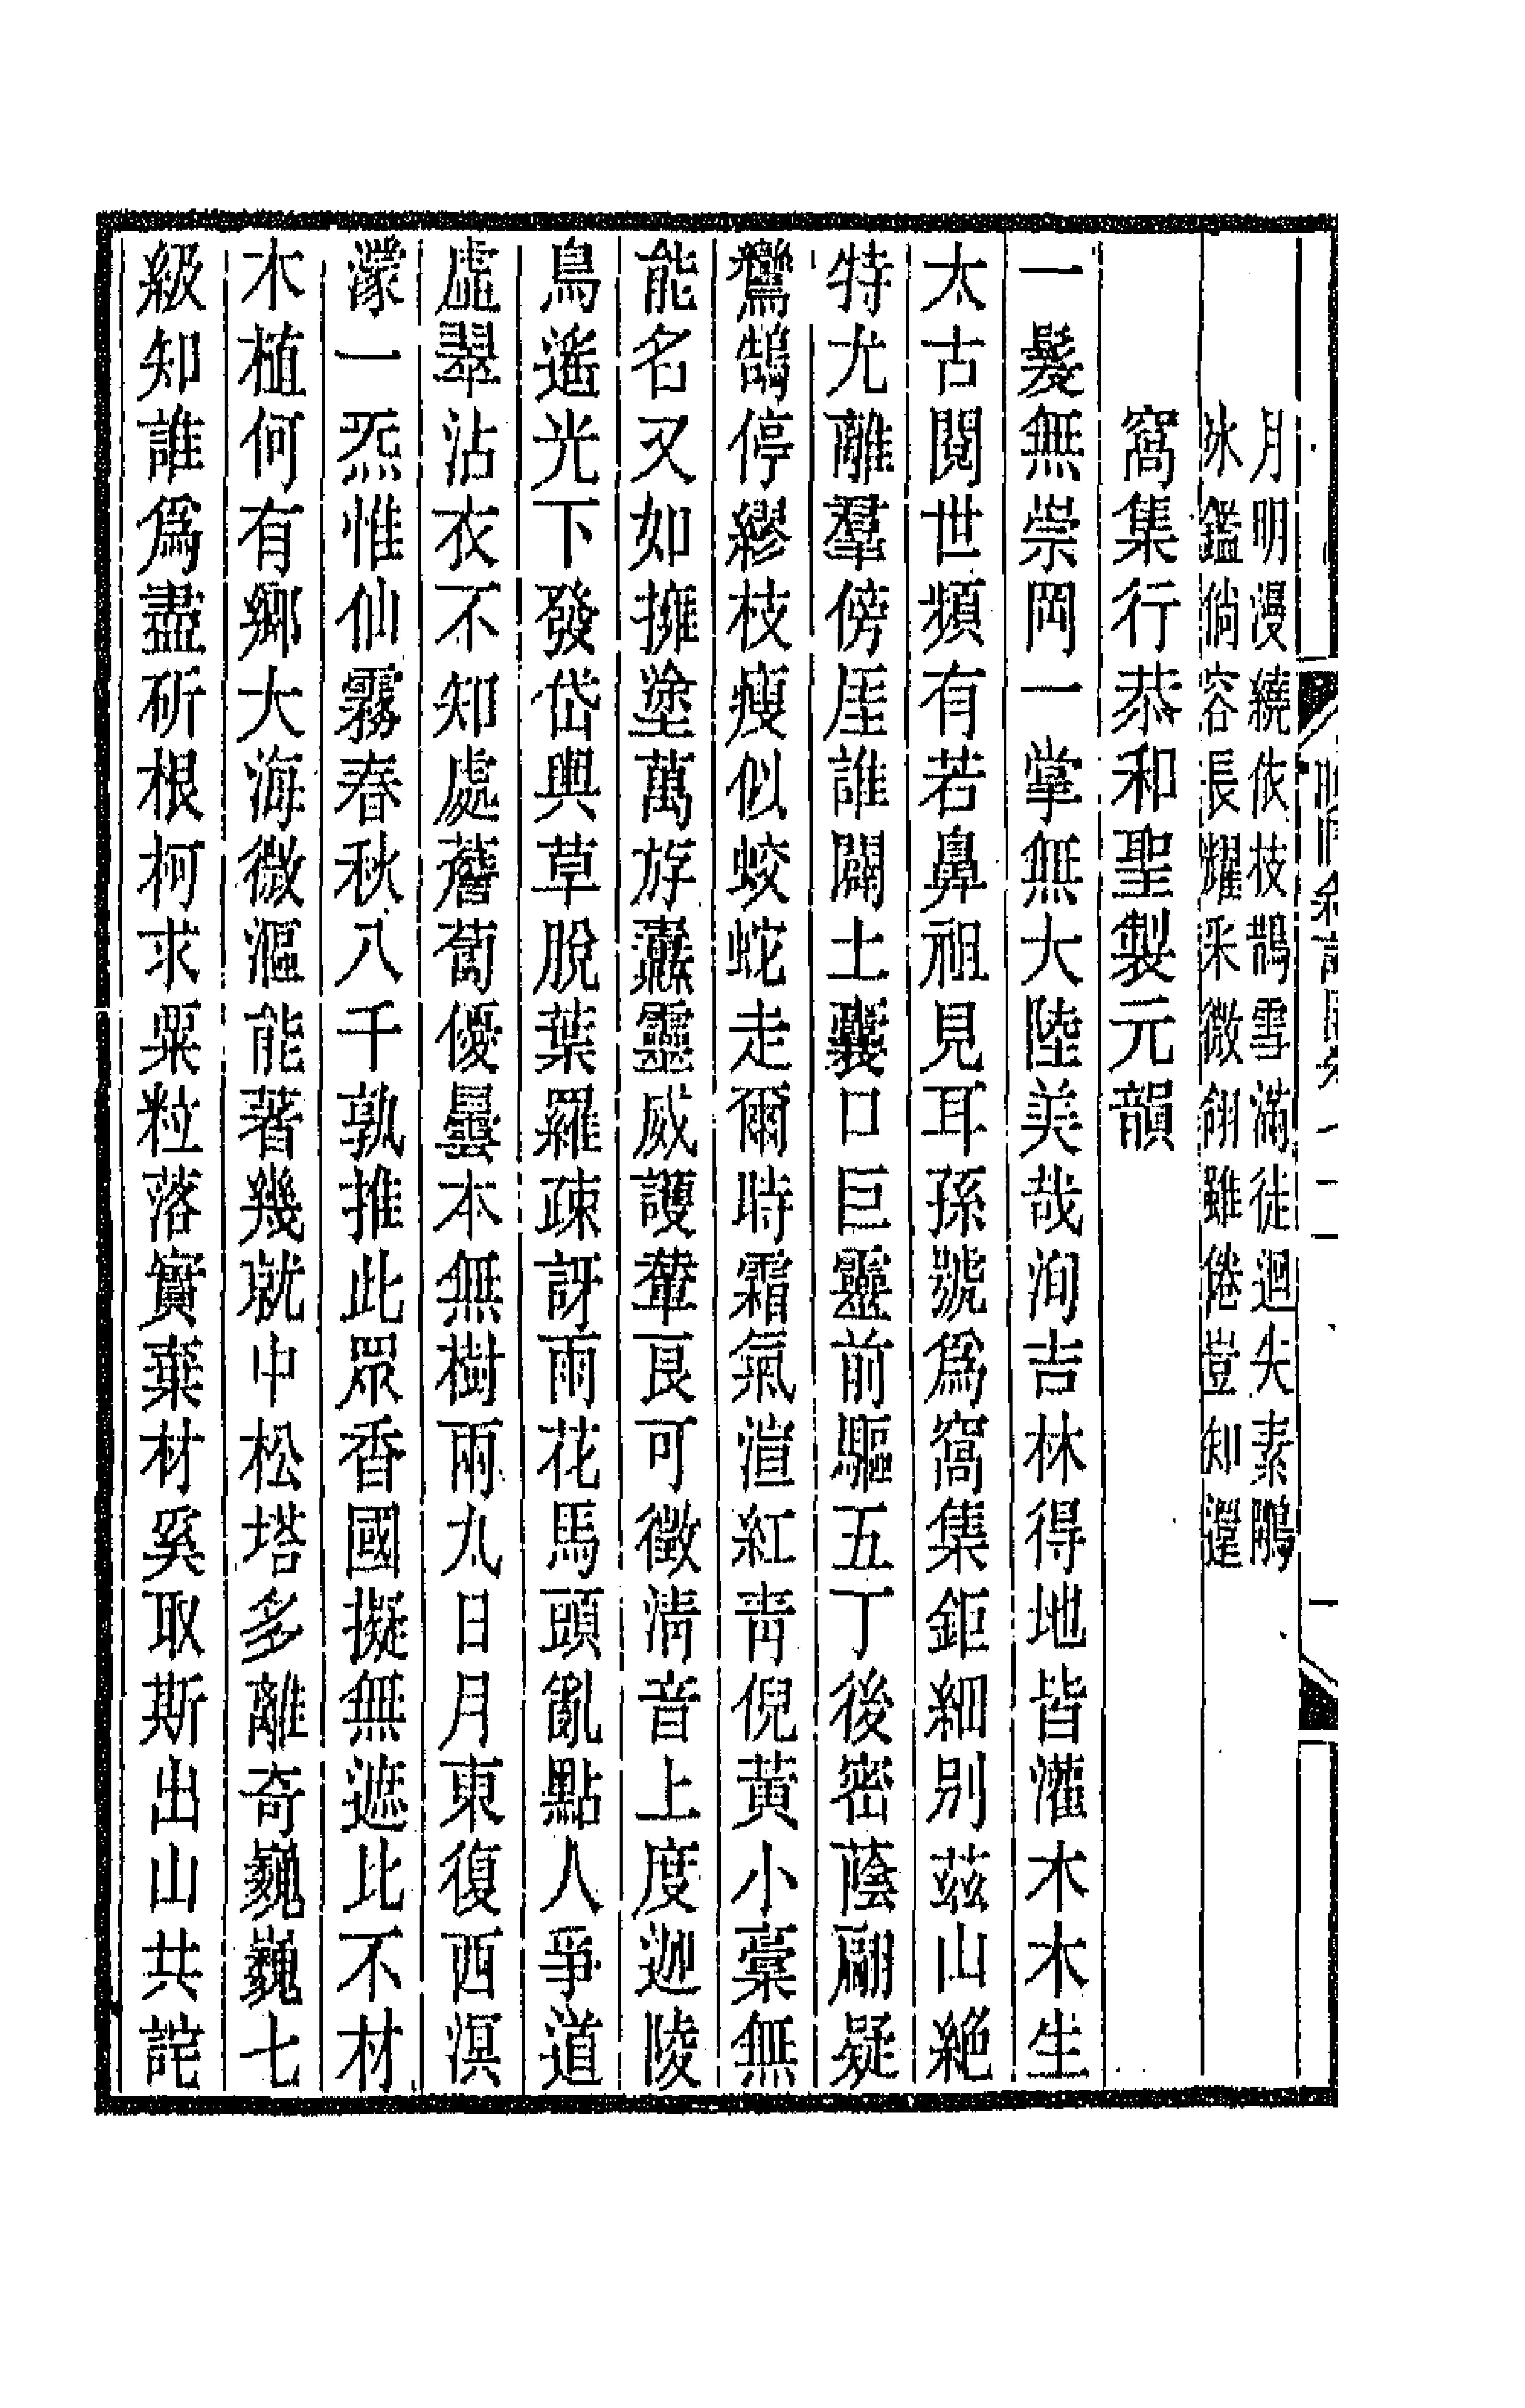 月明漫繞依枝鵲雪滿徒迴失素鷴
冰鑑倘容長耀采微翎雖倦豈知還
窩集行恭和聖製元韻
一髮無崇岡一掌無大陸美哉洵吉林得地皆灌木木生
太古閱世頻有若鼻祖見耳孫號爲窩集鉅細別茲山絶
特尤離羣傍厓誰闢土囊口巨靈前驅五丁後密蔭翩疑
鸞鵠停繆枝瘦似蛟蛇走爾時霜氣渲紅靑倪黃小稾無
能名又如擁塗萬斿纛靈威護輦良可徵淸音上度迦陵
鳥遙光下發岱輿草脫葉羅疎訝雨花馬頭亂點人爭道
虛翠沾衣不知處薝蔔優曇本無樹兩丸日月東復西溟
濛一炁惟仙霧春秋八千孰推此眾香國擬無遮比不材
木植何有鄉大海微漚能著幾就中松塔多離奇巍巍七
級知誰爲盡斫根柯求粟粒落實棄材奚取斯出山共詫